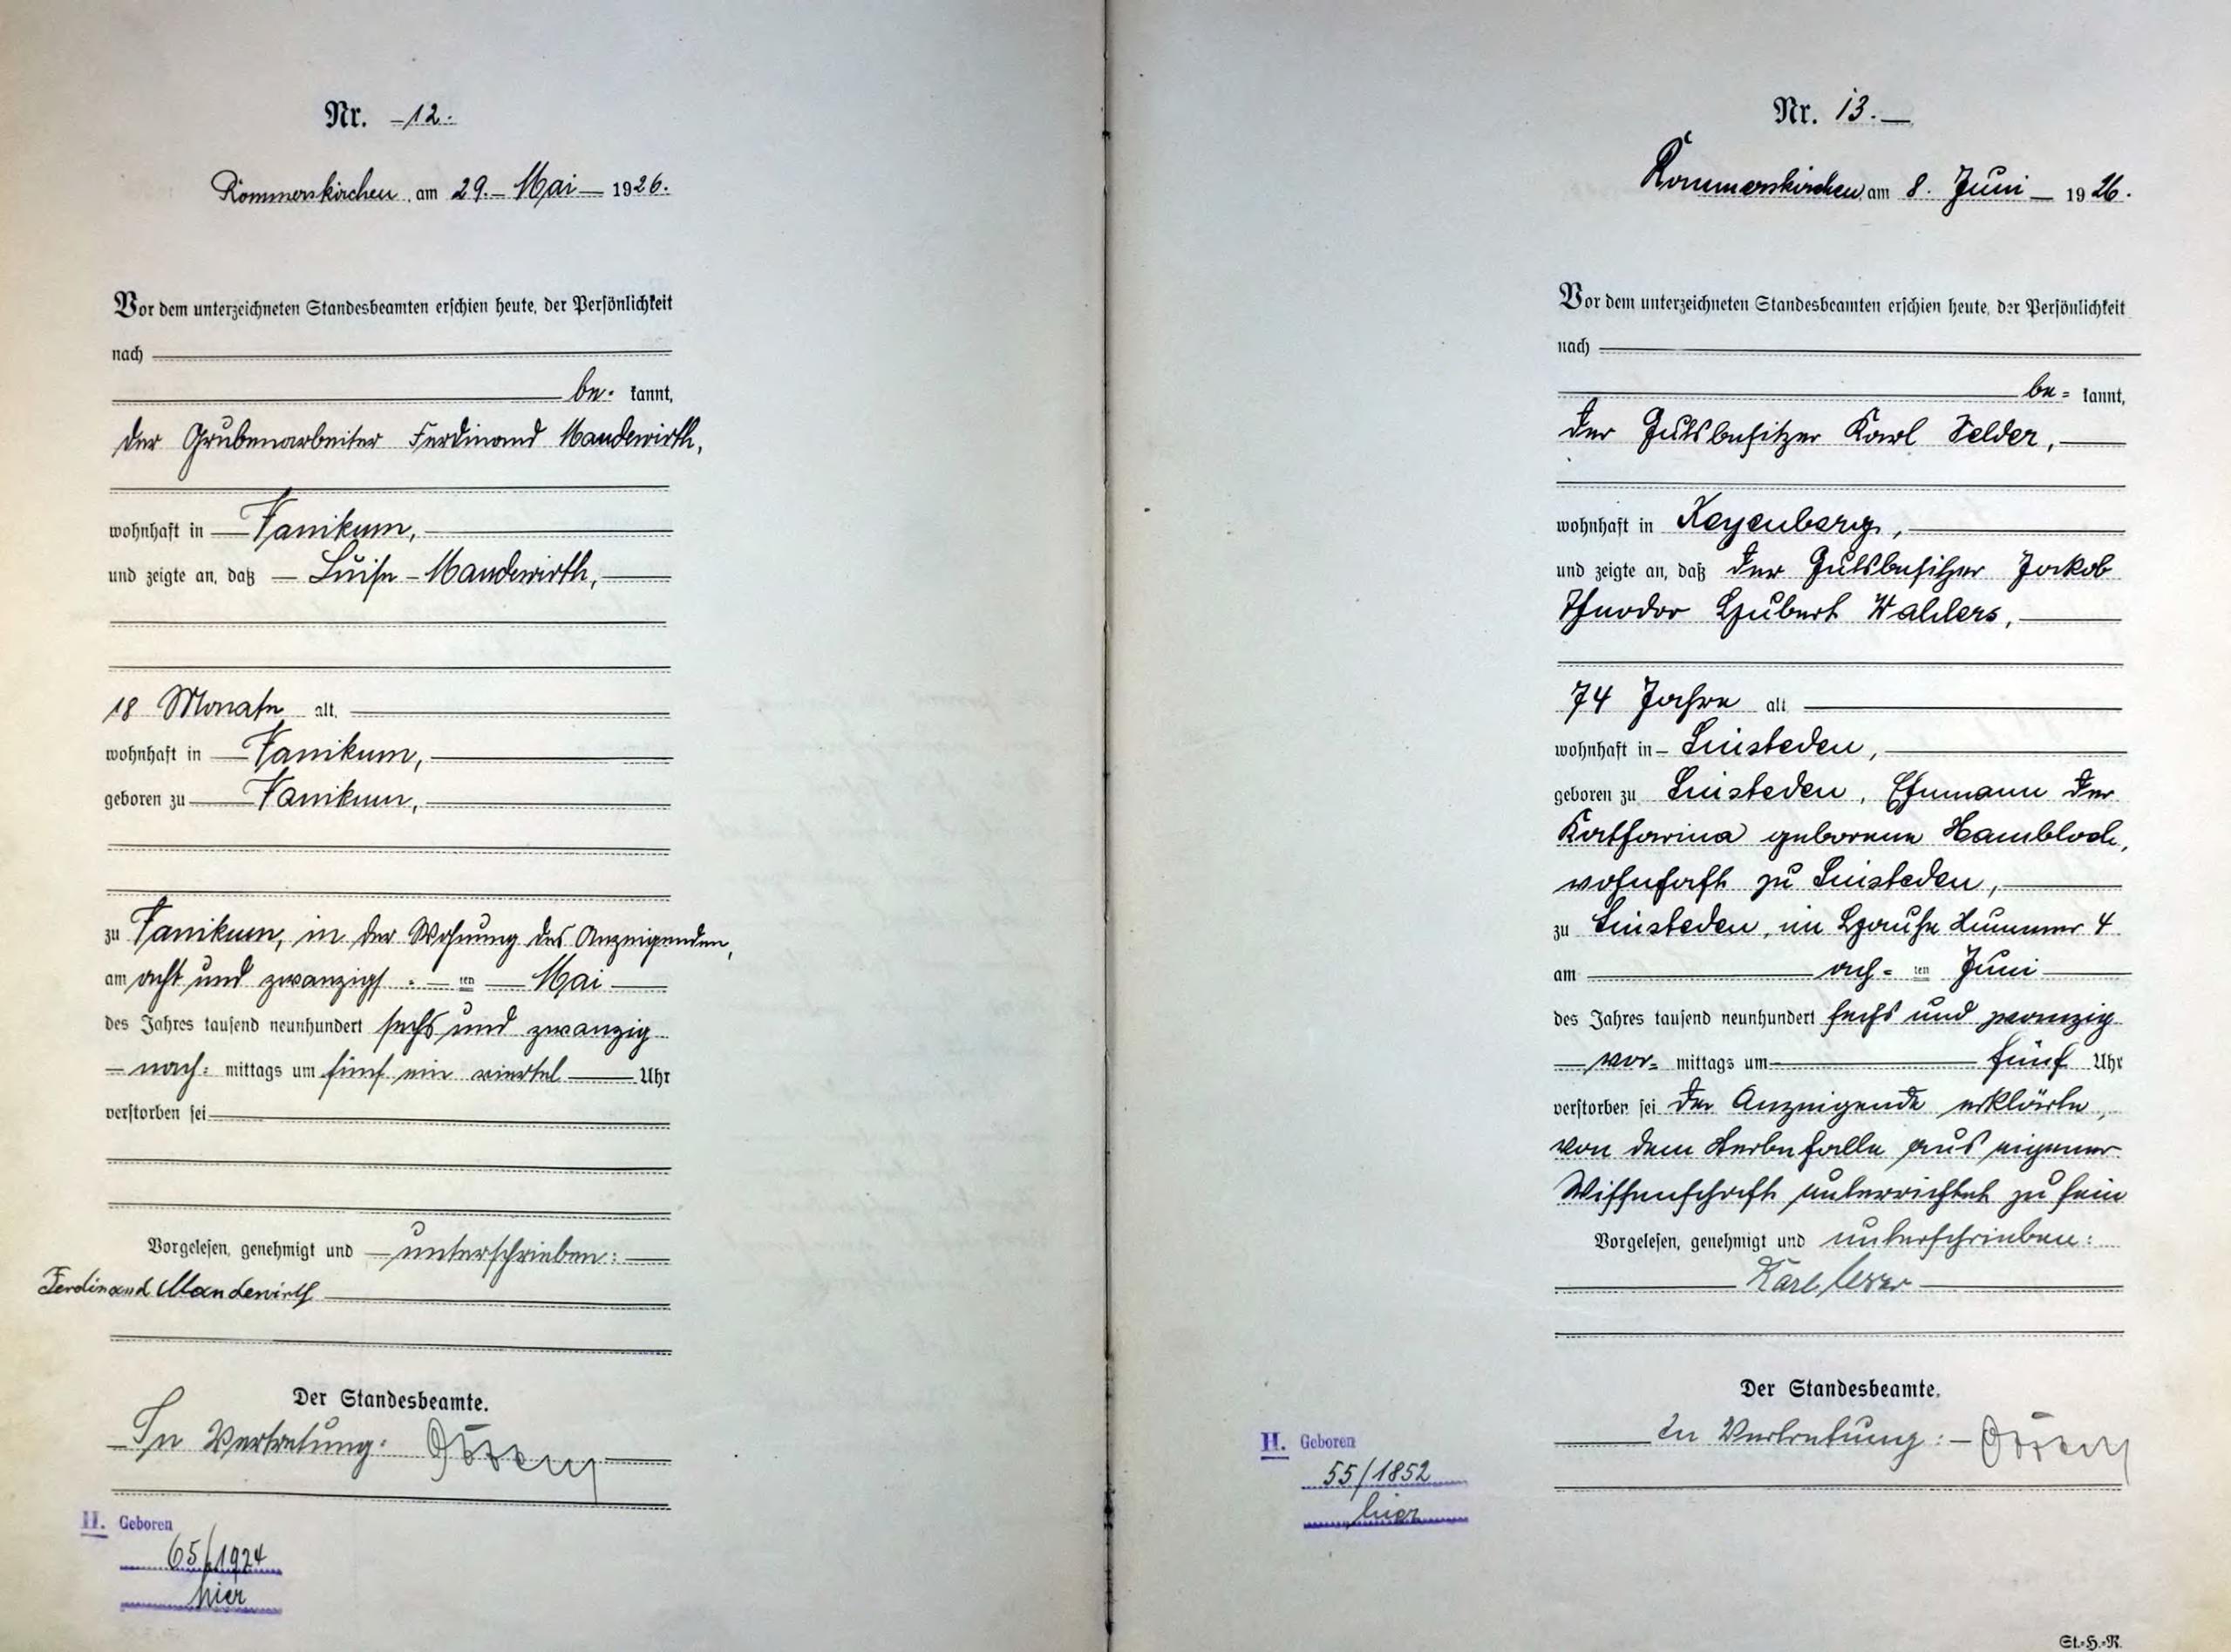 Nr. 12.
Rommerskirchen, am 29. Mai 1926.
Vor dem unterzeichneten Standesbeamten erschien heute, der Persönlichkeit
nach
be- kannt,
der Grubenarbeiter Ferdinand Mandewirth,
wohnhaft in Vanikum,
und zeigte an, daß Luise Mandewirth,
18 Monate alt,
wohnhaft in Vanikum,
geboren zu Vanikum,
zu Vanikum, in der Wohnung des Anzeigenden,
am acht und zwanzigs- ten Mai
des Jahres tausend neunhundert sechs und zwanzig
nach- mittags um fünf ein viertel Uhr
verstorben sei
Vorgelesen, genehmigt und unterschrieben:
Ferdinand Mandewirth
Der Standesbeamte.
In Vertretung:
II. Geboren
65/1924
hier
Nr. 13.
Rommerskirchen, am 8. Juni 1926.
Vor dem unterzeichneten Standesbeamten erschien heute, der Persönlichkeit
nach
be- kannt,
der Gutsbesitzer Karl
wohnhaft in Keyenberg,
und zeigte an, daß der Gutsbesitzer Jakob
Theodor Hubert Wahlers,
74 Jahre alt
wohnhaft in Sinsteden,
geboren zu Sinsteden, Ehemann der
Katharina geborene Hambloch,
wohnhaft zu Sinsteden,
zu Sinsteden, im Hause Nummer 4
am ach- ten Juni
des Jahres tausend neunhundert sechs und zwanzig
vor- mittags um fünf Uhr
verstorben sei. Der Anzeigende erklärte,
von dem Sterbefalle aus eigener
Wissenschaft unterrichtet zu sein
Vorgelesen, genehmigt und unterschrieben:
Karl
Der Standesbeamte.
In Vertretung:
II. Geboren
55/1852
hier
St.-H.-R.